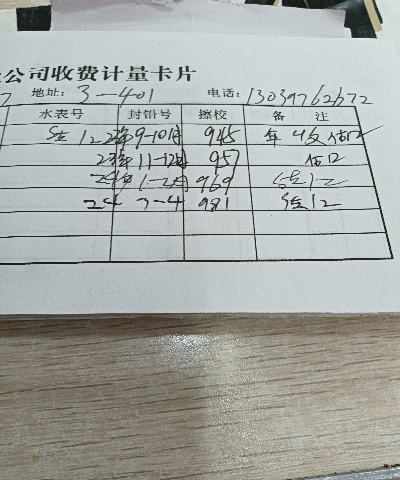 公司收费计量卡片
7 地址: 3-401 电话: 13039762672
水表号 封铅号 擦校 备 注
12 23年9-10月 945 年 收 估12
23年11-12月 957 估12
24年1-2月 969 12
24 3-4 981 12